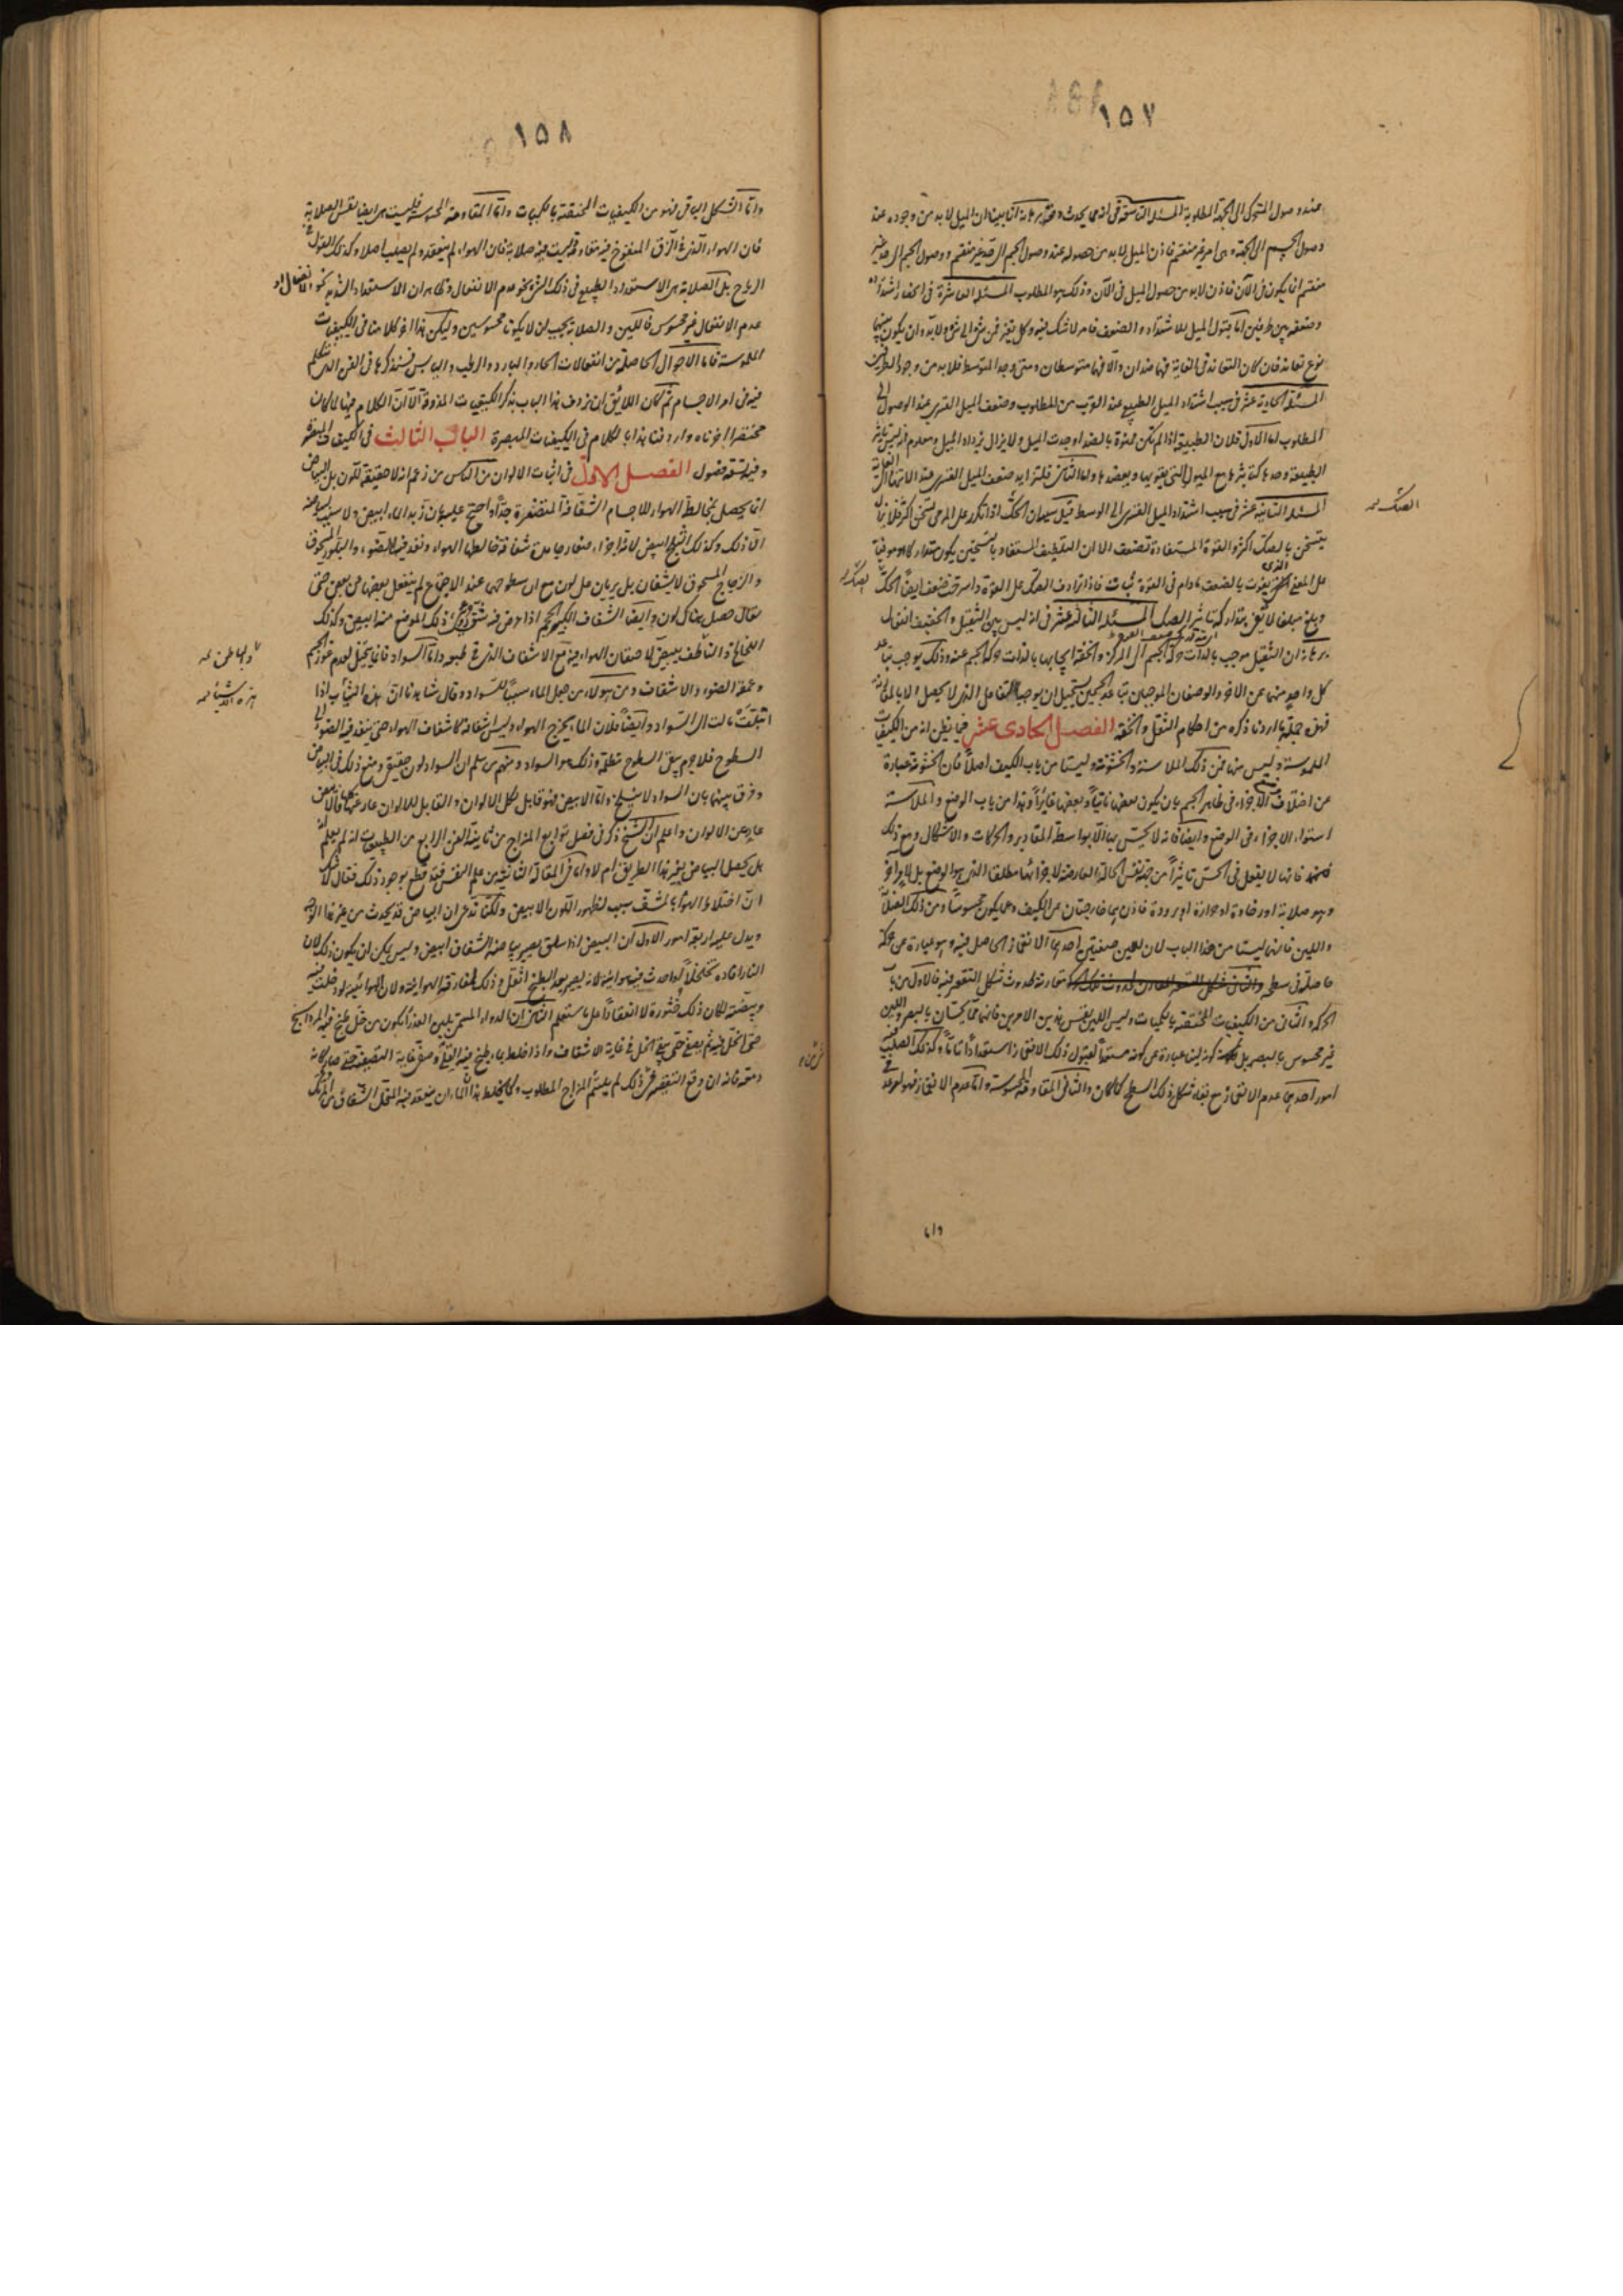 ١٥٧
عند وصول المتحرك الى الجهة المطلوبة المسئلة التاسعة فى انه متى يحدث وقته برهانه انا بينا ان الميل لا بد من وجوده عند
وصول الجسم الى الجهة وهى امر غير منقسم فاذن الميل لا بد من حصوله عند وصول الجسم الى حد غير منقسم ووصول الجسم الى حد غير
منقسم انما يكون فى الآن فاذن لا بد من حصول الميل فى الآن وذلك هو المطلوب المسئلة العاشرة فى انحفاز اشتداده
وضعفه بين طرفين اما قبول الميل للاشتداد والضعف فامر لا شك فيه وكل تغير فمن شىء الى شىء ولا بد وان يكون بينهما
نوع تعاند فان كان التعاند فى الغاية فهما ضدان والا فهما متوسطان ومتى وجد المتوسط فلا بد من وجود الطرفين
المسئلة الحادية عشر فى سبب اشتداد الميل الطبيعى عند القرب من المطلوب وضعف الميل القسرى عند الوصول الى
المطلوب اما الاول فلان الطبيعة اذا لم تكن ممنوة بالضد اوجدت الميل ولا يزال يزداد الميل ومعلوم انه ليس تاثير
الطبيعة وحدها كتاثيرها مع الميول التى يقويها ويعضدها واما الثانى فلتزايد ضعف الميل القسرى عند الانتهاء الى الغاية
المسئلة الثانية عشر فى سبب اشتداد الميل القسرى الى الوسط قيل سببه ان الحك اذا تكرر على المرمى تسخن اكثر فلا يزال
يتسخن بالصك اكثر والقوة المستفادة تضعف الا ان التلطيف المستفاد بالتسخين يكون متداركا وموفيا
على المعنى الذى يفوت بالضعف ما دام فى القوة ثبات فاذا ترادف الصك على القوة واسرفت ضعف ايضا الحك
وبلغ مبلغا لا يفى بتدارك تاثير الصك المسئلة الثالثة عشر فى انه ليس بين الثقيل والخفيف انفعال
برهانه ان الثقيل موجب بالذات حركة الجسم الى المركز والخفة ايجابها بالذات حركة الجسم عنه وذلك يوجب تباعد
كل واحد منهما عن الآخر والوصفان الموجبان تباعد الجسمين يستحيل ان يوجبا التفاعل الذى لا يحصل الا بالملاقاة
فهذه جملة ما اردنا ذكره من احكام الثقل والخفة الفصل الحادى عشر فيما يظن انه من الكيفيات
الملموسة وليس منها فمن ذلك الملاسة والخشونة وليستا من باب الكيف اصلا فان الخشونة عبارة
عن اختلاف الاجزاء فى ظاهر الجسم بان يكون بعضها ناتيا وبعضها غائرا وهذا من باب الوضع والملاسة
استواء الاجزاء فى الوضع وايضا فانه لا يحس بها الا بواسطة المقادير والحركات والاشكال ومع ذلك
فانها لا يفعل فى الحس تاثيرا من جهة نفس الحالة العارضة لاجزائها مطلقا الذى هو الوضع بل لامر آخر
وهو صلابة او رخاوة او حرارة او برودة فاذن هما خارجتان عن الكيف وعما يكون محسوسا ومن ذلك الصلابة
واللين فانهما ليستا من هذا الباب لان للين صفتين احدهما الانغماز الحاصل فيه وهو عبارة عن حركة
حاصلة فى سطحه والثانى مقارنة لحدوث شكل التقعير فيه فالاول من باب
الحركة والثانى من الكيفيات المختصة بالكميات وليس اللين نفس هذين الامرين فانهما مما يحسان بالبصر واللين
غير محسوس بالبصر بل كونه لينا عبارة عن كونه مستعدا لقبول ذلك الانغماز استعدادا تاما وكذلك الصلب فيه
امور احدها عدم الانغماز مع بقاء شكل ذلك السطح كما كان والثانى المقاومة المحسوسة واما عدم الانغماز فهو امر عدمى
واما
الصك
الصك
١٥٨
واما الشكل الباقى فهو من الكيفيات المختصة بالكميات واما المقاومة المحسوسة فليست هى ايضا نفس الصلابة
فان الهواء الذى فى الزق المنفوخ فيه مقاومة وليست فيه صلابة فان الهواء لم ينعقد ولم يصلب اصلا وكذلك القول فى
الرياح بل الصلابة هى الاستعداد الطبيعى فى ذلك الشىء نحو عدم الانفعال وظاهر ان الاستعداد الشديد نحو الانفعال او
عدم الانفعال غير محسوس فاللين والصلابة يجب ان لا يكونا محسوسين وليكن هذا آخر كلامنا فى الكيفيات
الملموسة فاما الاحوال الحاصلة من انفعالات الحار والبارد والرطب واليابس فسنذكرها فى الفن الذى نتكلم
فيه فى امر الاجسام ثم كان اللائق ان نردف هذا الباب بذكر الكيفيات المذوقة الا ان الكلام فيها لما كان
مختصرا اخرناه واردفنا هذا بالكلام فى الكيفيات المبصرة الباب الثالث فى الكيفيات المبصرة
وفيه تسعة فصول الفصل الاول فى اثبات الالوان من الناس من زعم انه لا حقيقة للون بل البياض
انما يحصل بمخالطة الهواء للاجسام الشفافة المتصغرة جدا واحتج عليه بان زبد الماء ابيض ولا سبب لبياضه
الا ذلك وكذلك الثلج ابيض لانه اجزاء صغار جامدة شفافة خالطها الهواء ونفذ فيه الضوء والبلور المسحوق
والزجاج المسحوق لا يشفان بل يريان على لون مع ان سطوحهما عند الاجتماع لم ينفعل بعضها عن بعض حتى
يقال حصل هناك لون وايضا الشفاف الكبير الحجم اذا عرض فيه شق رؤى ذلك الموضع منه ابيض وكذلك
والناطف يبيض لاحتقان الهواء فيه مع الاشفاف الذى فى طبعه واما السواد فانما يتخيل لعدم غور الجسم
وعمقه الضوء والاشفاف ومن هؤلاء من جعل الماء سببا للسواد وقال شاهدنا ان هذه الثياب اذا
ابتلت مالت الى السواد وايضا فلان الماء يخرج الهواء وليس اشفافه كاشفاف الهواء حتى ينفذ فيه الضوء الى
السطوح فلا جرم يبقى السطوح مظلمة وذلك هو السواد ومنهم من سلم ان السواد لون حقيقى ومنع ذلك فى البياض
وفرق بينهما بان السواد لا ينسلخ واما الابيض فهو قابل لكل الالوان والقابل للالوان عار عنها فالابيض
عار عن الالوان واعلم ان الشيخ ذكر فى فصل توابع المزاج من ثانية الفن الرابع من الطبيعيات انه لم يعلم انه
هل يحصل البياض بغير هذا الطريق ام لا واما فى المقالة الثانية من علم النفس فقد قطع بوجود ذلك فقال لا شك
ان اختلاط الهواء بالمشف سبب لظهور اللون الابيض ولكنا ندعى ان البياض قد يحدث من غير هذا الوجه
ويدل عليه اربعة امور الاول ان البيض اذا سلق يصير بياضه الشفاف ابيض وليس يمكن ان يكون ذلك لان
النار افادته تخلخلا او احدثت فيه هوائية لانه يصير بعد الطبخ اثقل وذلك لمفارقة الهوائية ولان الهوائية لو دخلت فيه
وبيضته لكان ذلك خثورة لا انعقادا على ما ستعلم الثانى ان الدواء المسمى بلبن العذراء يكون من خل طبخ فيه المرداسنج
حتى انحل فيه ثم يصفى حتى يبقى الخل فى غاية الاشفاف واذا خلط بماء طبخ فيه القلى وصفى غاية التصفية حتى صار كانه
دمعة فانه ان وقع التقصير فى ذلك لم يلتئم المزاج المطلوب وكما يخلط هذا الماءان ينعقد فيه المنحل الشفاف من المرتك